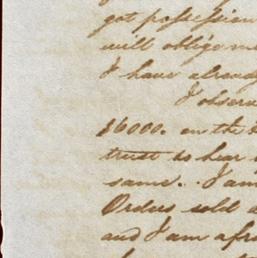 got possession
will oblige me
I have already
I observe
$6000. on the
trust to hear
same. I am
Orders sold
and I am afra